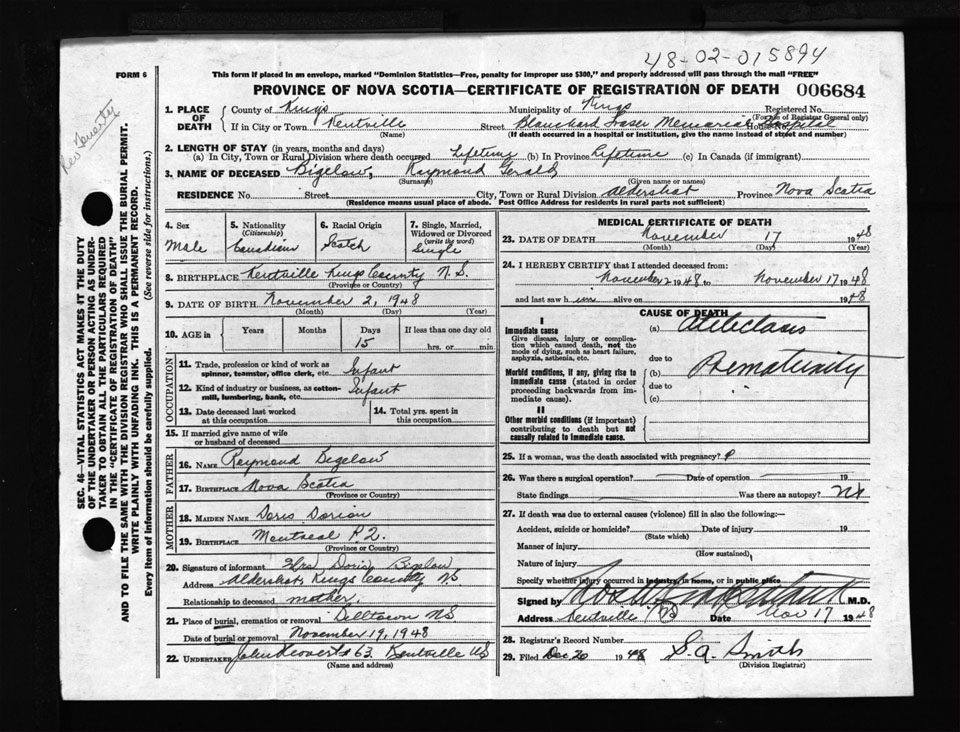 48-02-015894
FORM 6
This form if placed in an envelope, marked "Dominion Statistics—Free, penalty for improper use $300," and properly addressed will pass through the mail "FREE"
PROVINCE OF NOVA SCOTIA—CERTIFICATE OF REGISTRATION OF DEATH 006684
SEC. 46—VITAL STATISTICS ACT MAKES IT THE DUTY
OF THE UNDERTAKER OR PERSON ACTING AS UNDER-
TAKER TO OBTAIN ALL THE PARTICULARS REQUIRED
IN THE "CERTIFICATE OF REGISTRATION OF DEATH"
AND TO FILE THE SAME WITH THE DIVISION REGISTRAR WHO SHALL ISSUE THE BURIAL PERMIT.
WRITE PLAINLY WITH UNFADING INK. THIS IS A PERMANENT RECORD.
Every item of information should be carefully supplied. (See reverse side for instructions.)
1. PLACE OF DEATH
County of Kings Municipality of Kings Registered No.
(For use of Registrar General only)
If in City or Town Kentville Street Blanchard Fraser Memorial Hospital House No.
(Name) (If death occurred in a hospital or institution, give the name instead of street and number)
2. LENGTH OF STAY (in years, months and days)
(a) In City, Town or Rural Division where death occurred Lifetime (b) In Province Lifetime (c) In Canada (if immigrant)
3. NAME OF DECEASED Bigelow, Raymond Gerald
(Surname) (Given name or names)
RESIDENCE No. Street City, Town or Rural Division Aldershot Province Nova Scotia
(Residence means usual place of abode. Post Office Address for residents in rural parts not sufficient)
4. Sex
Male
5. Nationality
(Citizenship)
Canadian
6. Racial Origin
Scotch
7. Single, Married,
Widowed or Divorced
(write the word)
Single
8. BIRTHPLACE Kentville Kings County N.S.
(Province or Country)
9. DATE OF BIRTH November 2, 1948
(Month) (Day) (Year)
10. AGE in Years Months Days If less than one day old
15 hrs. or min.
OCCUPATION
11. Trade, profession or kind of work as
spinner, teamster, office clerk, etc. Infant
12. Kind of industry or business, as cotton-
mill, lumbering, bank, etc. Infant
13. Date deceased last worked
at this occupation
14. Total yrs. spent in
this occupation
15. If married give name of wife
or husband of deceased
FATHER
16. NAME Raymond Bigelow
17. BIRTHPLACE Nova Scotia
(Province or Country)
MOTHER
18. MAIDEN NAME Doris Dorion
19. BIRTHPLACE Montreal P.Q.
(Province or Country)
20. Signature of informant Mrs Doris Bigelow
Address Aldershot, Kings County NS
Relationship to deceased mother.
21. Place of burial, cremation or removal NS
Date of burial or removal November 19, 1948
22. UNDERTAKER John 63 Kentville NS
(Name and address)
MEDICAL CERTIFICATE OF DEATH
23. DATE OF DEATH November 17 1948
(Month) (Day) (Year)
24. I HEREBY CERTIFY that I attended deceased from:
November 2 1948 to November 17 1948
and last saw h im alive on 1948
CAUSE OF DEATH
I
Immediate cause
Give disease, injury or complica-
tion which caused death, not the
mode of dying, such as heart failure,
asphyxia, asthenia, etc.
(a) Atelectasis
due to
Morbid conditions, if any, giving rise to
immediate cause (stated in order
proceeding backwards from im-
mediate cause).
(b) Prematurity
due to
(c)
II
Other morbid conditions (if important)
contributing to death but not
causally related to immediate cause.
25. If a woman, was the death associated with pregnancy?
26. Was there a surgical operation? Date of operation 19
State findings Was there an autopsy? No
27. If death was due to external causes (violence) fill in also the following:—
Accident, suicide or homicide? Date of injury 19
(State which)
Manner of injury
(How sustained)
Nature of injury
Specify whether injury occurred in industry, in home, or in public place
Signed by M.D.
Address Kentville NS Date Nov 17 1948
28. Registrar's Record Number
29. Filed Dec 20 1948 S.A. Smith
(Division Registrar)